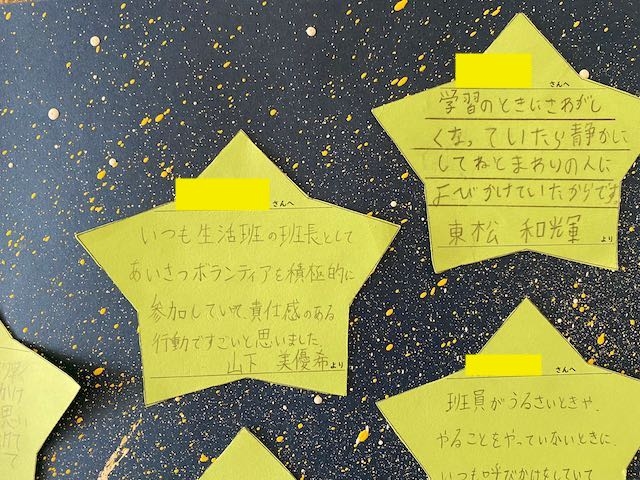 さんへ
いつも生活班の班長として
あいさつボランティアを積極的に
参加していて、責任感のある
行動ですごいと思いました。
山下 美優希より
さんへ
学習のときにさわがし
くなっていたら静かに
してねとまわりの人に
よびかけていたからです
東松 和輝 より
さんへ
班員がうるさいときや、
やることをやっていないときに、
いつも呼びかけをしていて